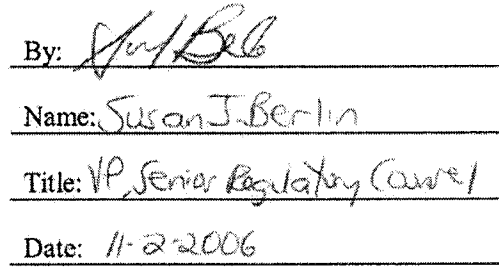 By:
Name: Susan J. Berlin
Title: VP, Senior Regulatory Counsel
Date: 11-2-2006